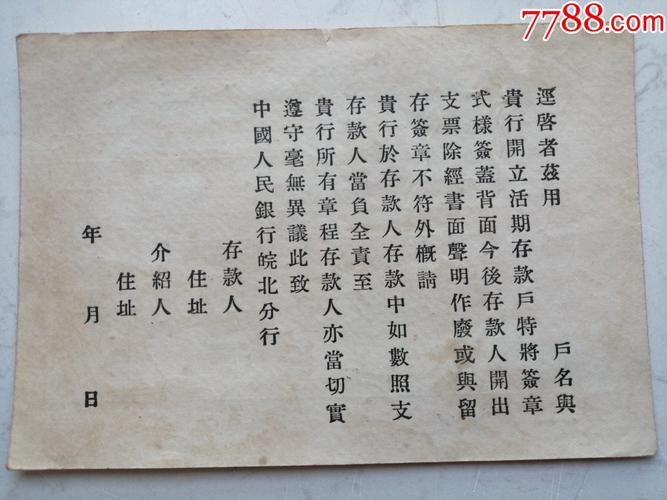 7788.com
逕啓者茲用　　　　戶名與
貴行開立活期存款戶特將簽章
式樣簽蓋背面今後存款人開出
支票除經書面聲明作廢或與留
存簽章不符外槪請
貴行於存款人存款中如數照支
存款人當負全責至
貴行所有章程存款人亦當切實
遵守毫無異議此致
中國人民銀行皖北分行
存款人
住址
介紹人
住址
年　月　日